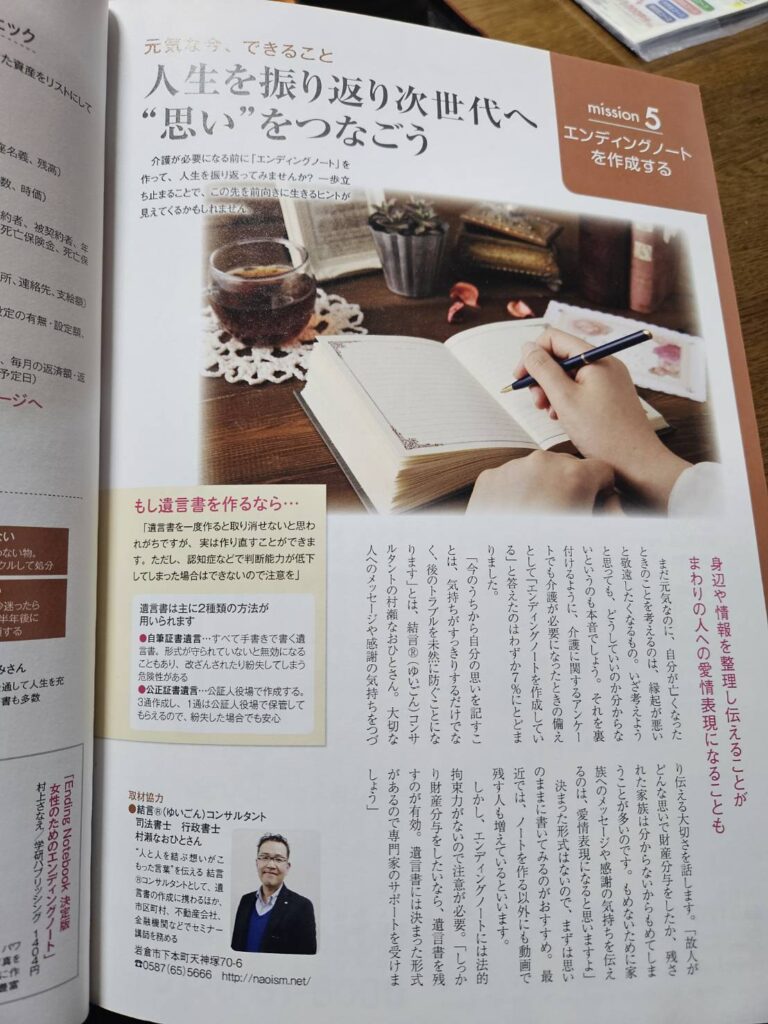 元気な今、できること
人生を振り返り次世代へ
“思い”をつなごう
mission 5
エンディングノート
を作成する
介護が必要になる前に「エンディングノート」を
作って、人生を振り返ってみませんか? 一歩立
ち止まることで、この先を前向きに生きるヒントが
見えてくるかもしれません。
身辺や情報を整理し伝えることが
まわりの人への愛情表現になることも
まだ元気なのに、自分が亡くなった
ときのことを考えるのは、縁起が悪い
と敬遠したくなるもの。いざ考えよう
と思っても、どうしていいのか分からな
いというのも本音でしょう。それを裏
付けるように、介護に関するアンケー
トでも介護が必要になったときの備え
として「エンディングノートを作成してい
る」と答えたのはわずか7%にとどま
りました。
「今のうちから自分の思いを記すこ
とは、気持ちがすっきりするだけでな
く、後のトラブルを未然に防ぐことにな
ります」とは、結言®(ゆいごん)コンサ
ルタントの村瀬なおひとさん。大切な
人へのメッセージや感謝の気持ちをつづ
り伝える大切さを話します。「故人が
どんな思いで財産分与をしたか、残さ
れた家族は分からないからもめてしま
うことが多いのです。もめないために家
族へのメッセージや感謝の気持ちを伝え
るのは、愛情表現になると思いますよ」
決まった形式はないので、まずは思い
のままに書いてみるのがおすすめ。最
近では、ノートを作る以外にも動画で
残す人も増えているといいます。
しかし、エンディングノートには法的
拘束力がないので注意が必要。「しっか
り財産分与をしたいなら、遺言書を残
すのが有効。遺言書には決まった形式
があるので専門家のサポートを受けま
しょう」
もし遺言書を作るなら…
「遺言書を一度作ると取り消せないと思わ
れがちですが、実は作り直すことができま
す。ただし、認知症などで判断能力が低下
してしまった場合はできないので注意を」
遺言書は主に2種類の方法が
用いられます
●自筆証書遺言…すべて手書きで書く遺
言書。形式が守られていないと無効になる
こともあり、改ざんされたり紛失してしまう
危険性がある
●公正証書遺言…公証人役場で作成する。
3通作成し、1通は公証人役場で保管して
もらえるので、紛失した場合でも安心
取材協力
●結言®(ゆいごん)コンサルタント
司法書士 行政書士
村瀬なおひとさん
“人と人を結ぶ想いがこ
もった言葉”を伝える 結言
®コンサルタントとして、遺
言書の作成に携わるほか、
市区町村、不動産会社、
金融機関などでセミナー
講師を務める
岩倉市下本町天神塚70-6
✆0587(65)5666 http://naoism.net/
ェック
た資産をリストにして
座名義、残高)
数、時価)
約者、被契約者、年
死亡保険金、死亡保
所、連絡先、支給額)
設定の有無・設定額、
、毎月の返済額・返
予定日)
ページへ
ない
つない物。
クルして処分
迷ったら
半年後に
する
みさん
通して人生を充
書も多数
「Ending Notebook 決定版
女性のためのエンディングノート」
村上さなえ/学研パブリッシング 1404円